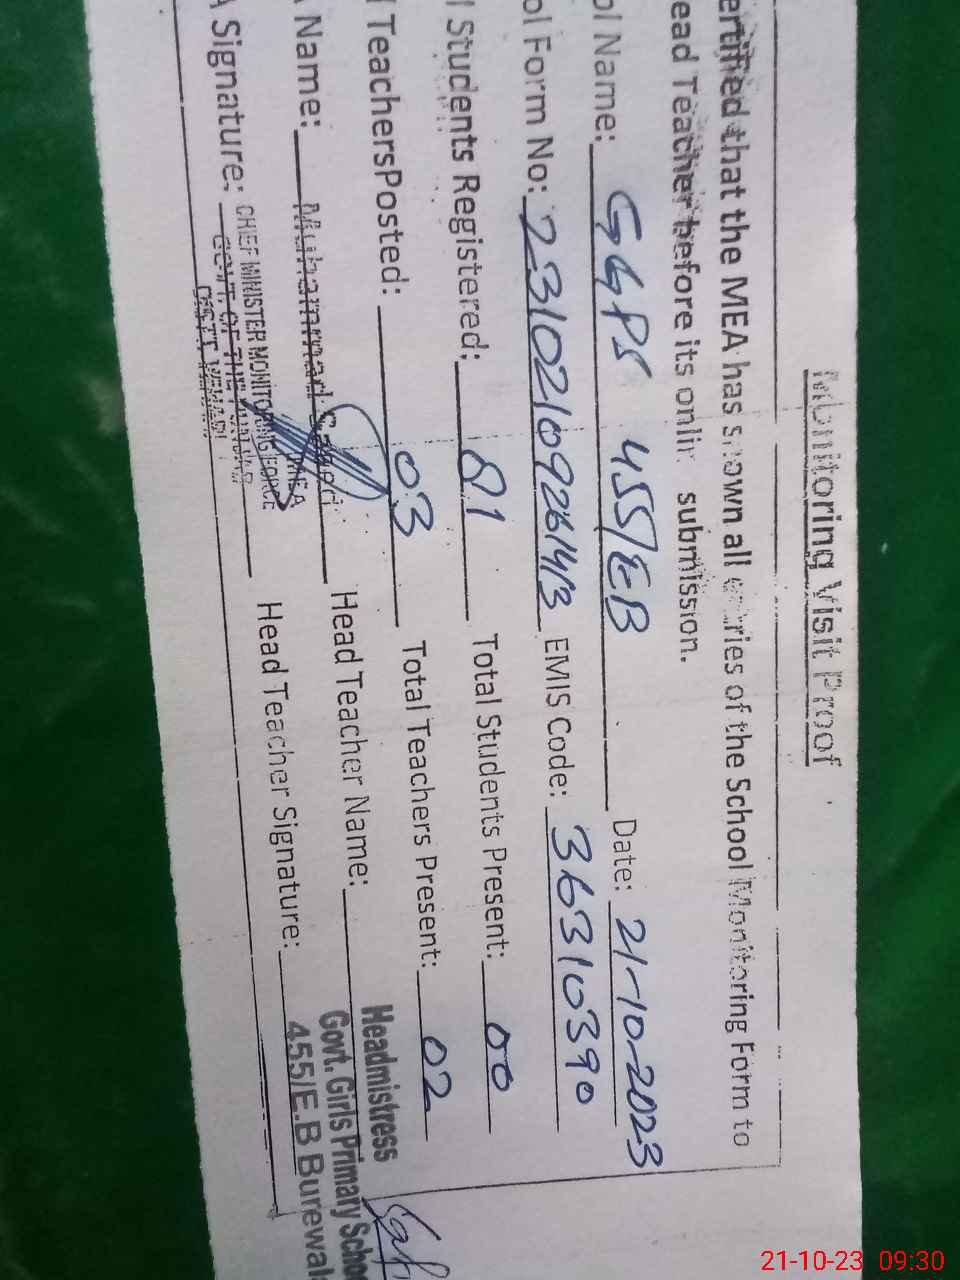 Monitoring Visit Proof
ertified that the MEA has shown all entries of the School Monitoring Form to
ead Teacher before its online submission.
ol Name: GGPS 455/EB Date: 21-10-2023
ol Form No: EMIS Code: 36310390
l Students Registered: 81 Total Students Present: 00
l TeachersPosted: 03 Total Teachers Present: 02
Name: Muhammad Head Teacher Name:
A Signature: Head Teacher Signature:
MEA
CHIEF MINISTER MONITORING FORCE
GOVT. OF THE PUNJAB
DISTT. VEHARI
Headmistress
Govt. Girls Primary Schoo
455/E.B Burewal
21-10-23 09:30